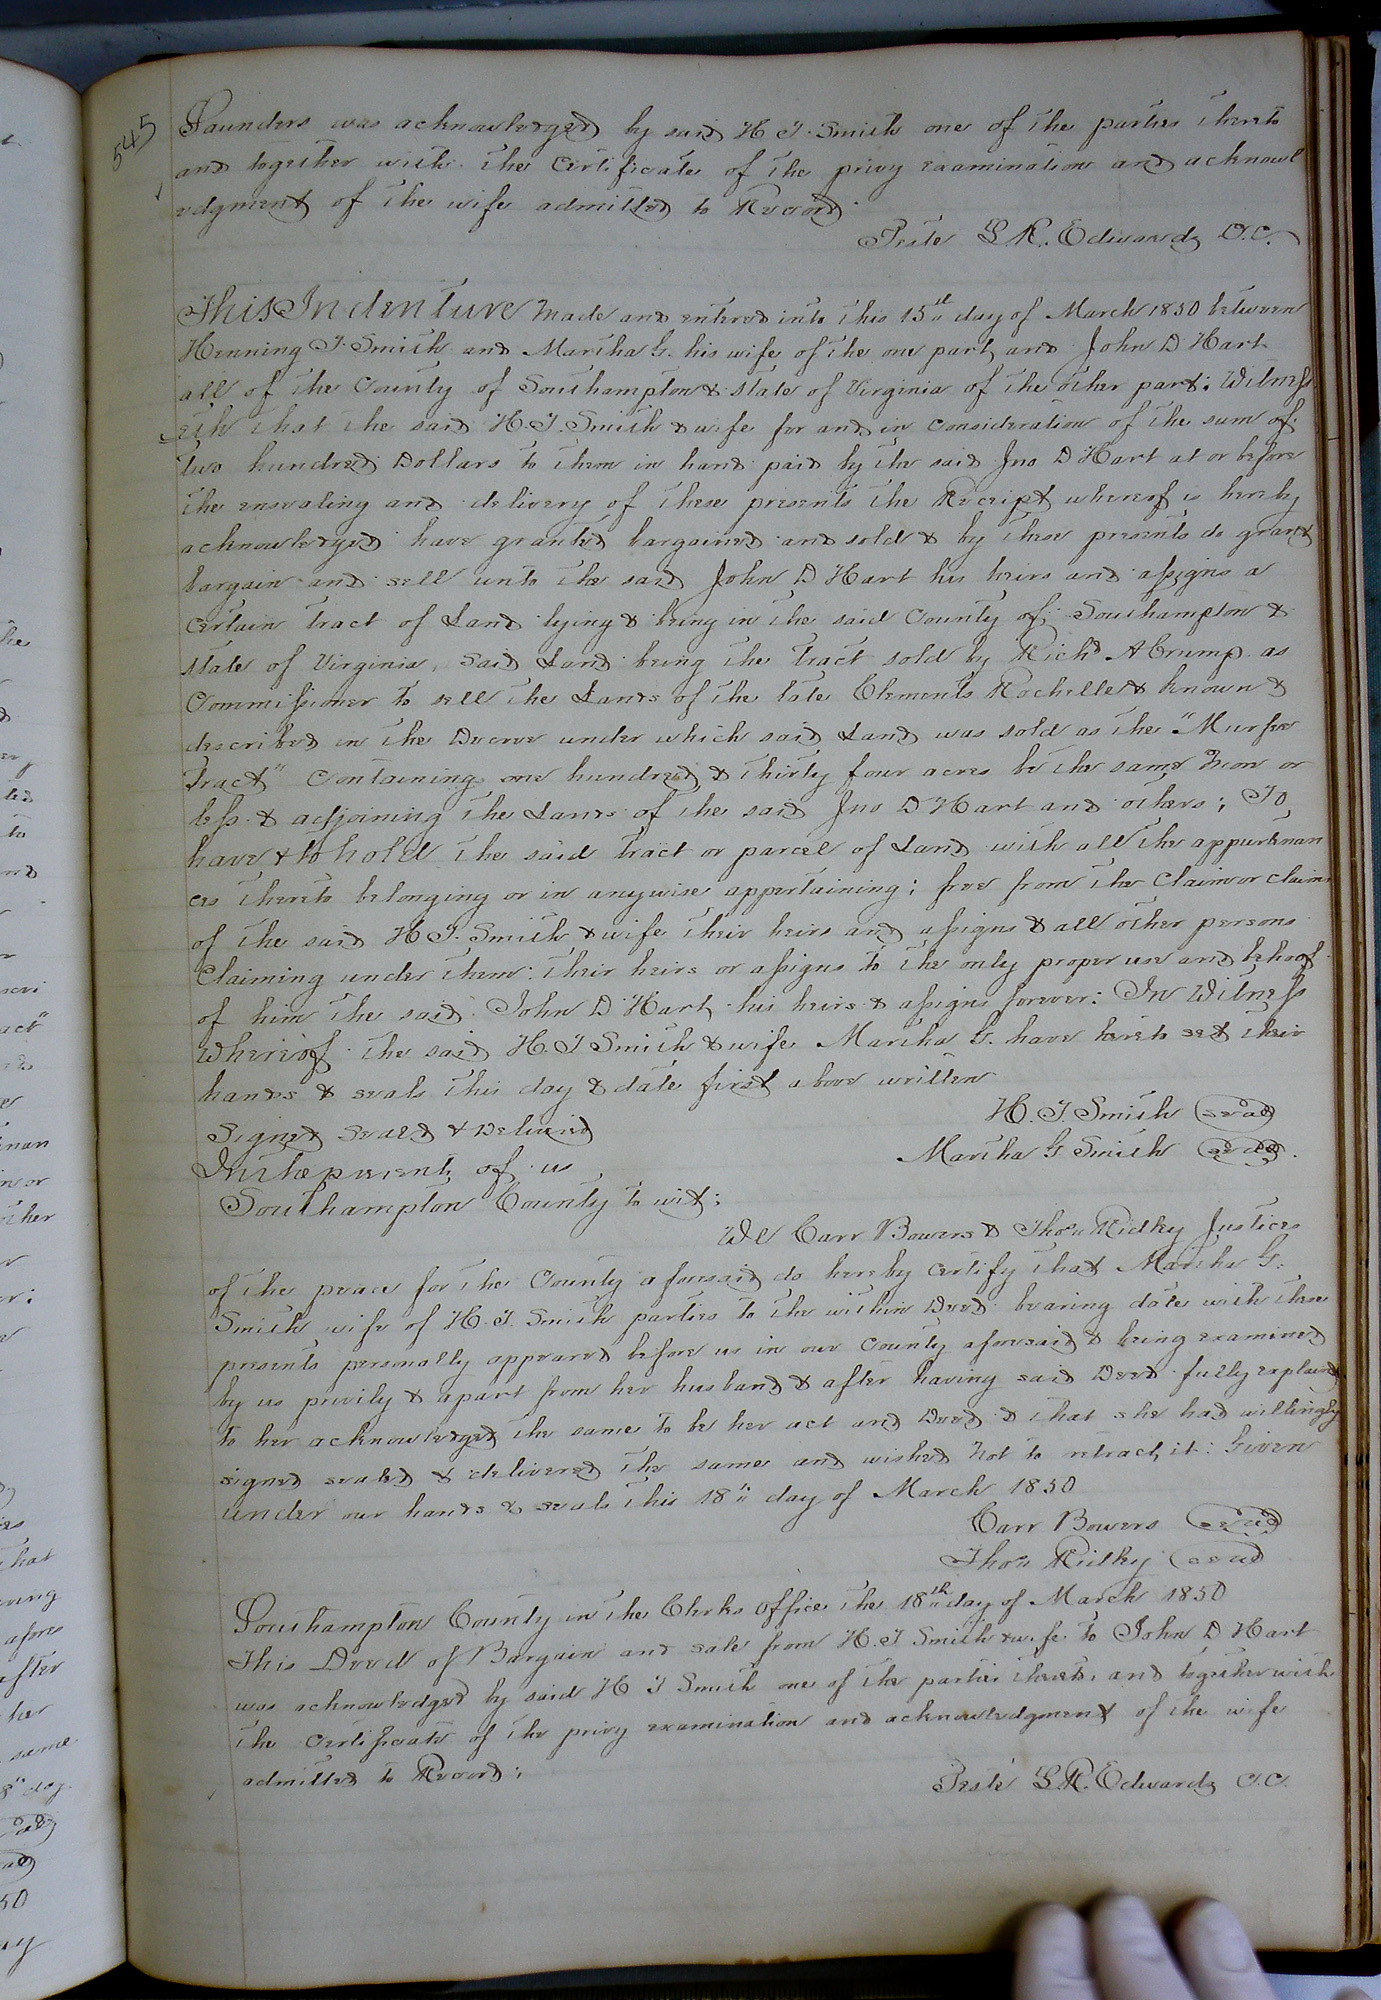 545
Saunders was acknowledged by said H T. Smith one of the parties thereto
and together with the Certificate of the privy examination and acknowl
edgment of the wife admitted to Record.
Teste L R. Edwards C.C.
This Indenture Made and entered into this 15th day of March 1850 between
Henning T. Smith and Martha G. his wife of the one part, and John D Hart
all of the County of Southampton & state of Virginia of the other part: Witness
eth that the said H. T. Smith & wife for and in consideration of the sum of
two hundred Dollars to them in hand paid by the said Jno D Hart at or before
the ensealing and delivery of these presents the Receipt whereof is hereby
acknowledged have granted bargained and sold & by these presents do grant
bargain and sell unto the said John D Hart his heirs and assigns a
certain tract of Land lying & being in the said County of Southampton &
state of Virginia, said Land being the tract sold by Richd A Crump as
Commissioner to sell the Lands of the late Clements Rochelle & known &
described in the Decree under which said Land was sold as the "Murfee
Tract" Containing one hundred & thirty four acres be the same more or
less & adjoining the Lands of the said Jno D Hart and others; To
have & to hold the said tract or parcel of Land with all the appurtenan
ces thereto belonging or in anywise appertaining; free from the Claim or claims
of the said H T. Smith & wife their heirs and assigns & all other persons
Claiming under them their heirs or assigns to the only proper use and behoof
of him the said John D Hart his heirs & assigns forever: In Witness
whereof the said H. T Smith & wife Martha G. have hereto set their
hands & seals this day & date first above written
Signed Sealed & Delivered
H. T. Smith (seal)
In the presents of us
Martha G Smith (seal).
Southampton County to wit:
We Carr Bowers & Thos Ridley Justices
of the peace for the County aforesaid do hereby certify that Martha G.
Smith wife of H. T. Smith parties to the within Deed bearing date with these
presents personally appeared before us in our County aforesaid & being examined
by us privily & apart from her husband & after having said Deed fully explained
to her acknowledged the same to be her act and Deed & that she had willingly
signed sealed & delivered the same and wished not to retract it: Given
under our hands & seals this 18th day of March 1850
Carr Bowers (seal)
Thos Ridley (seal)
Southampton County in the Clerks Office the 18th day of March 1850
This Deed of Bargain and sale from H. T Smith & wife to John D Hart
was acknowledged by said H T Smith one of the parties thereto, and together with
the Certificate of the privy examination and acknowledgment of the wife
admitted to Record:
Teste L R. Edwards C.C.